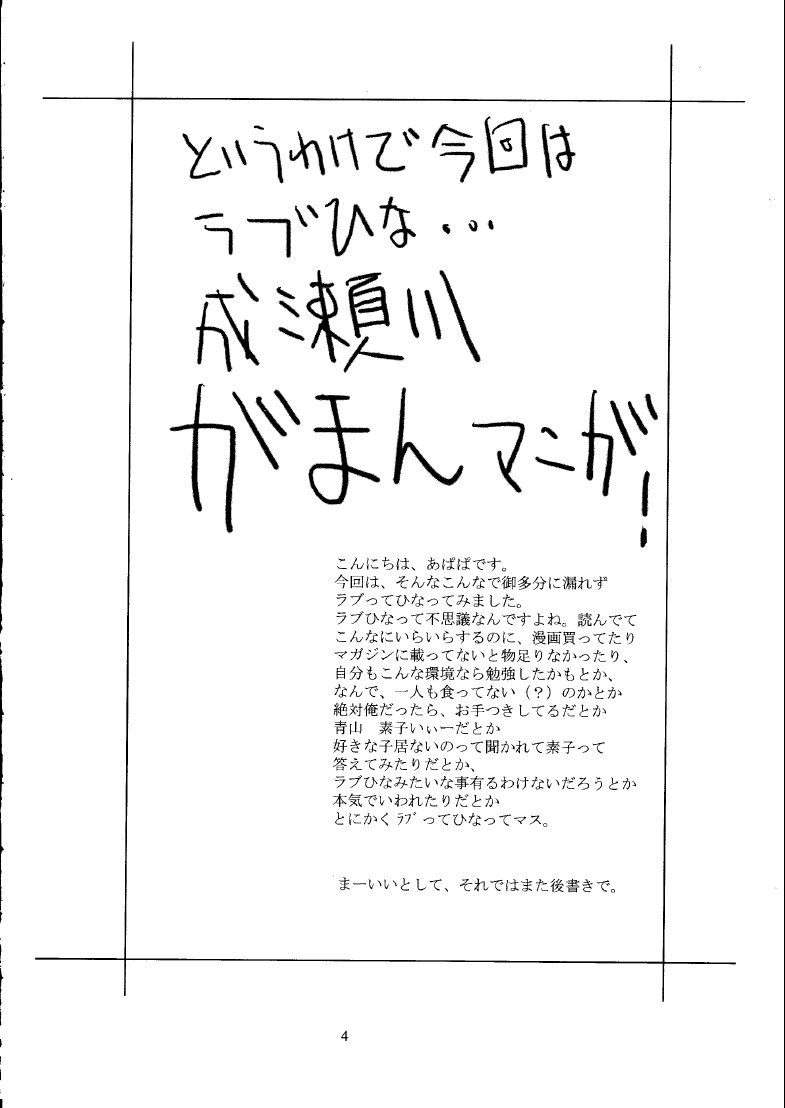 というわけで今回は
ラブひな・・・
成瀬川
がまんマニが!
こんにちは、あぱぱです。
今回は、そんなこんなで御多分に漏れず
ラブってひなってみました。
ラブひなって不思議なんですよね。読んでて
こんなにいらいらするのに、漫画買ってたり
マガジンに載ってないと物足りなかったり、
自分もこんな環境なら勉強したかもとか、
なんで、一人も食ってない（？）のかとか
絶対俺だったら、お手つきしてるだとか
青山　素子いぃーだとか
好きな子居ないのって聞かれて素子って
答えてみたりだとか、
ラブひなみたいな事有るわけないだろうとか
本気でいわれたりだとか
とにかくﾗﾌﾞってひなってマス。
まーいいとして、それではまた後書きで。
4